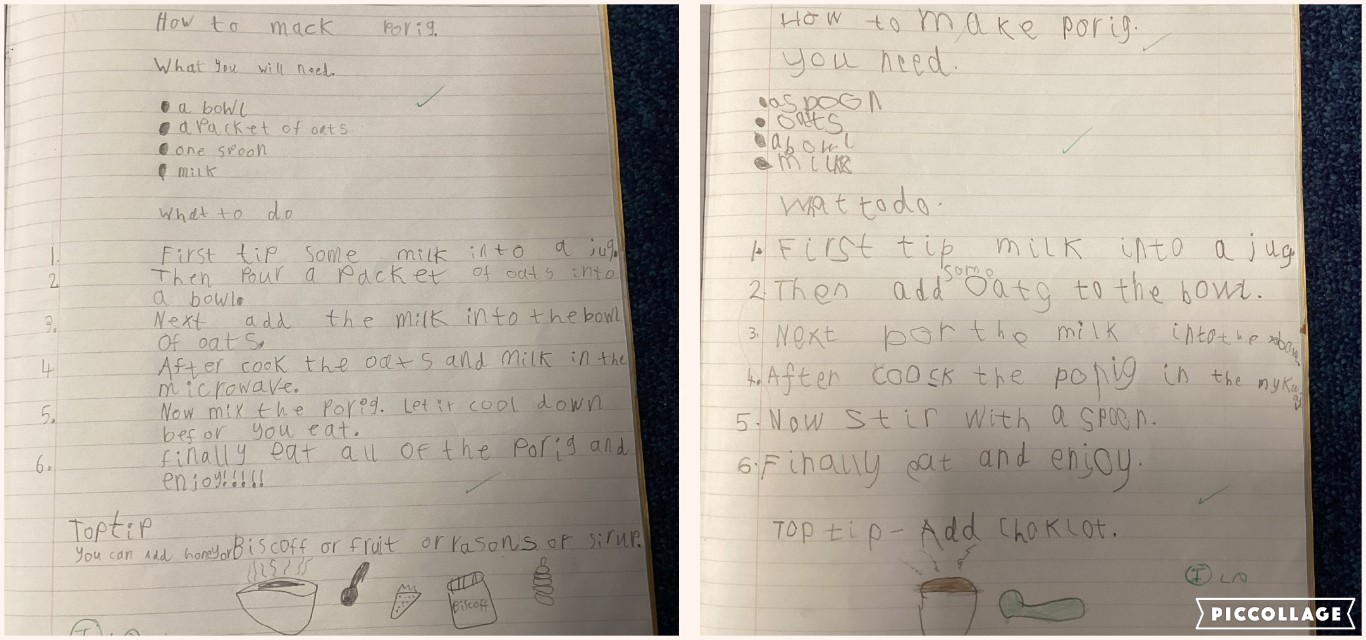 How to mack porig.
What you will need.
• a bowl
• a packet of oats
• one spoon
• milk
What to do
1. First tip some milk into a jug.
2 Then pour a packet of oats into
a bowl.
3. Next add the milk into the bowl
of oats.
4 After cook the oats and milk in the
microwave.
5. Now mix the porig. Let it cool down
befor you eat.
6. finally eat all of the porig and
enjoy!!!!!
Top tip
You can add honey or Biscoff or fruit or rasons or sirup.
Biscoff
How to make porig.
you need.
• a spoon
• oats
• a bowl
• milk
wat to do.
1. First tip milk into a jug
some
2. Then add oats to the bowl.
3. Next por the milk into the
4. After coock the porig in the
5. Now stir with a spoon.
6. Finally eat and enjoy.
Top tip - Add choklot.
I LO
PICCOLLAGE